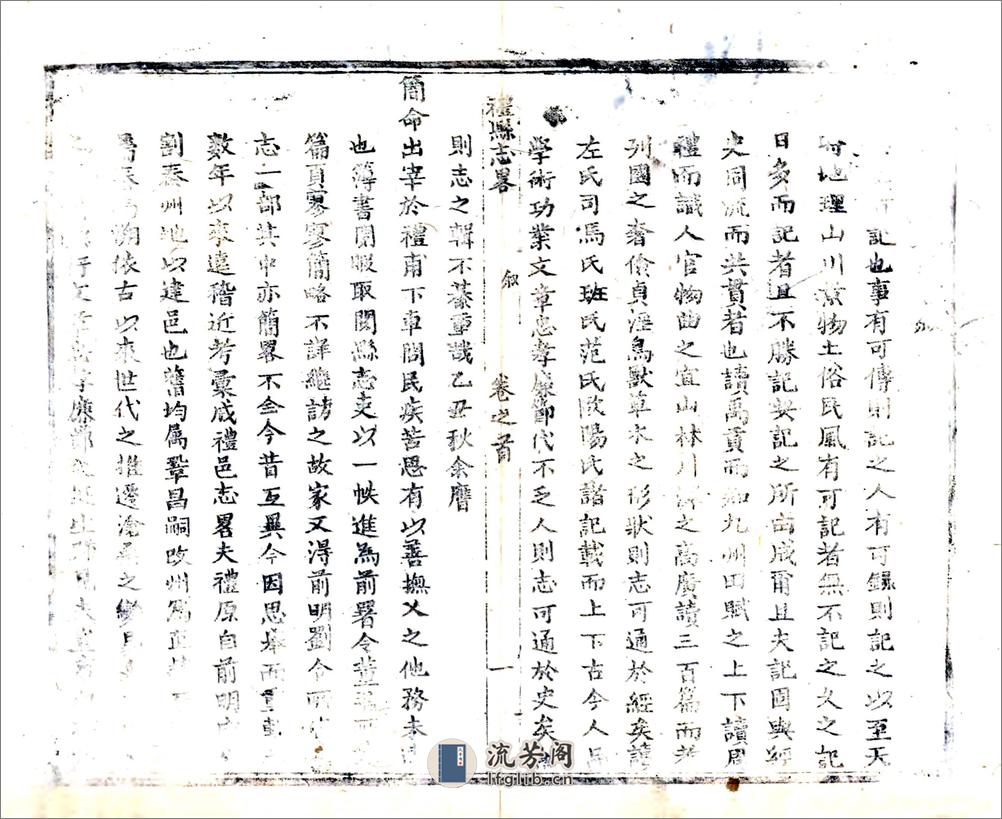 敘
記也事有可傳則記之人有可錄則記之以至天
時地理山川黨物土俗民風有可記者無不記之久之記
日多而記者且不勝記矣記之所由成爾且夫記固與經
史同流而共貫者也讀禹貢而知九州田賦之上下讀周
禮而識人官物曲之宜山林川澤之高廣讀三百篇而考
列國之奢儉貞淫鳥獸草木之形狀則志可通於經矣讀
左氏司馬氏班氏范氏歐陽氏諸記載而上下古今人品
學術功業文章忠孝廉節代不乏人則志可通於史矣
禮縣志畧
敘
卷之首
一
則志之輯不綦重哉乙丑秋余膺
簡命出宰於禮甫下車問民疾苦思有以善撫乂之他務未
也簿書閒暇取閱縣志吏以一帙進為前署令董
篇頁寥寥簡略不詳繼訪之故家又得前明劉令
志一部其中亦簡畧不全今昔互異今因思舉而重
數年以來遠稽近考彙成禮邑志畧夫禮原自前明
割秦州地以建邑也舊均屬鞏昌嗣改州為
依古以來世代之推遷滄桑之變
廉節
流芳阁
lfglib.cn